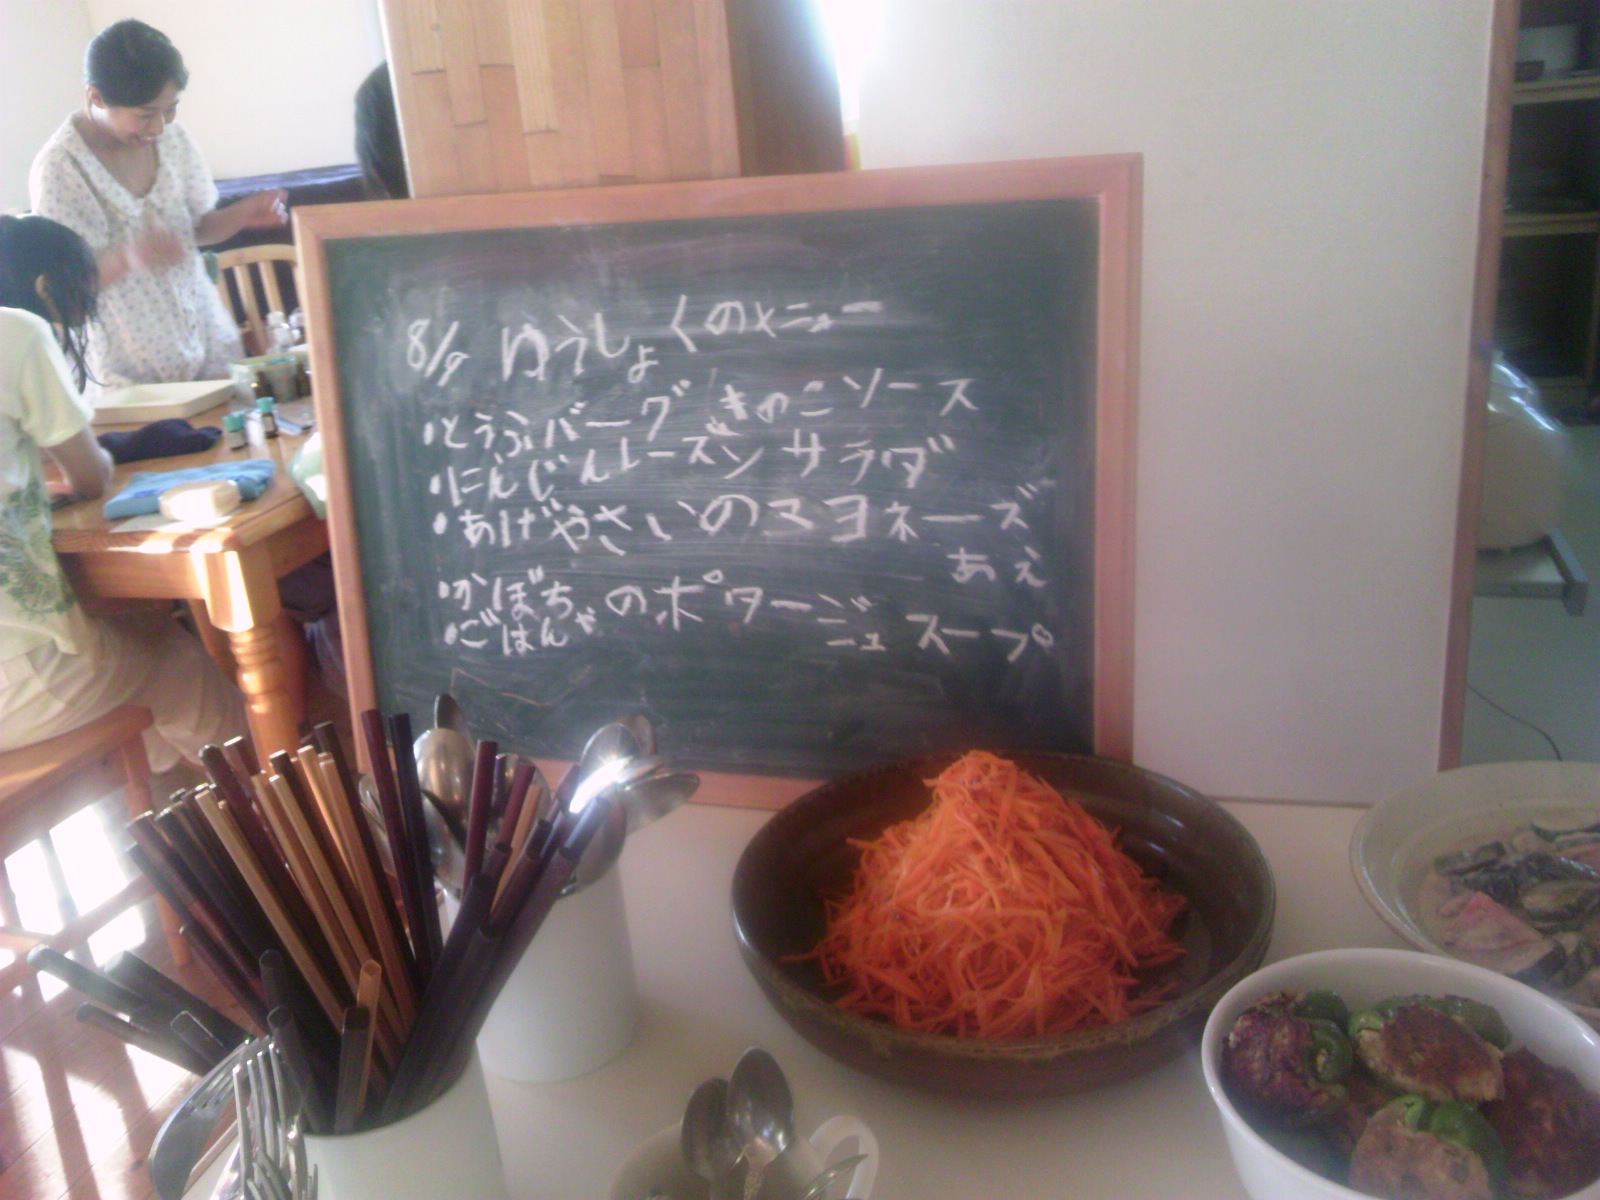 8/9 ゆうしょくのメニュー
・とうふバーグ きのこソース
・にんじんレーズンサラダ
・あげやさいのマヨネーズ
あえ
・かぼちゃのポタージュスープ
・ごはん